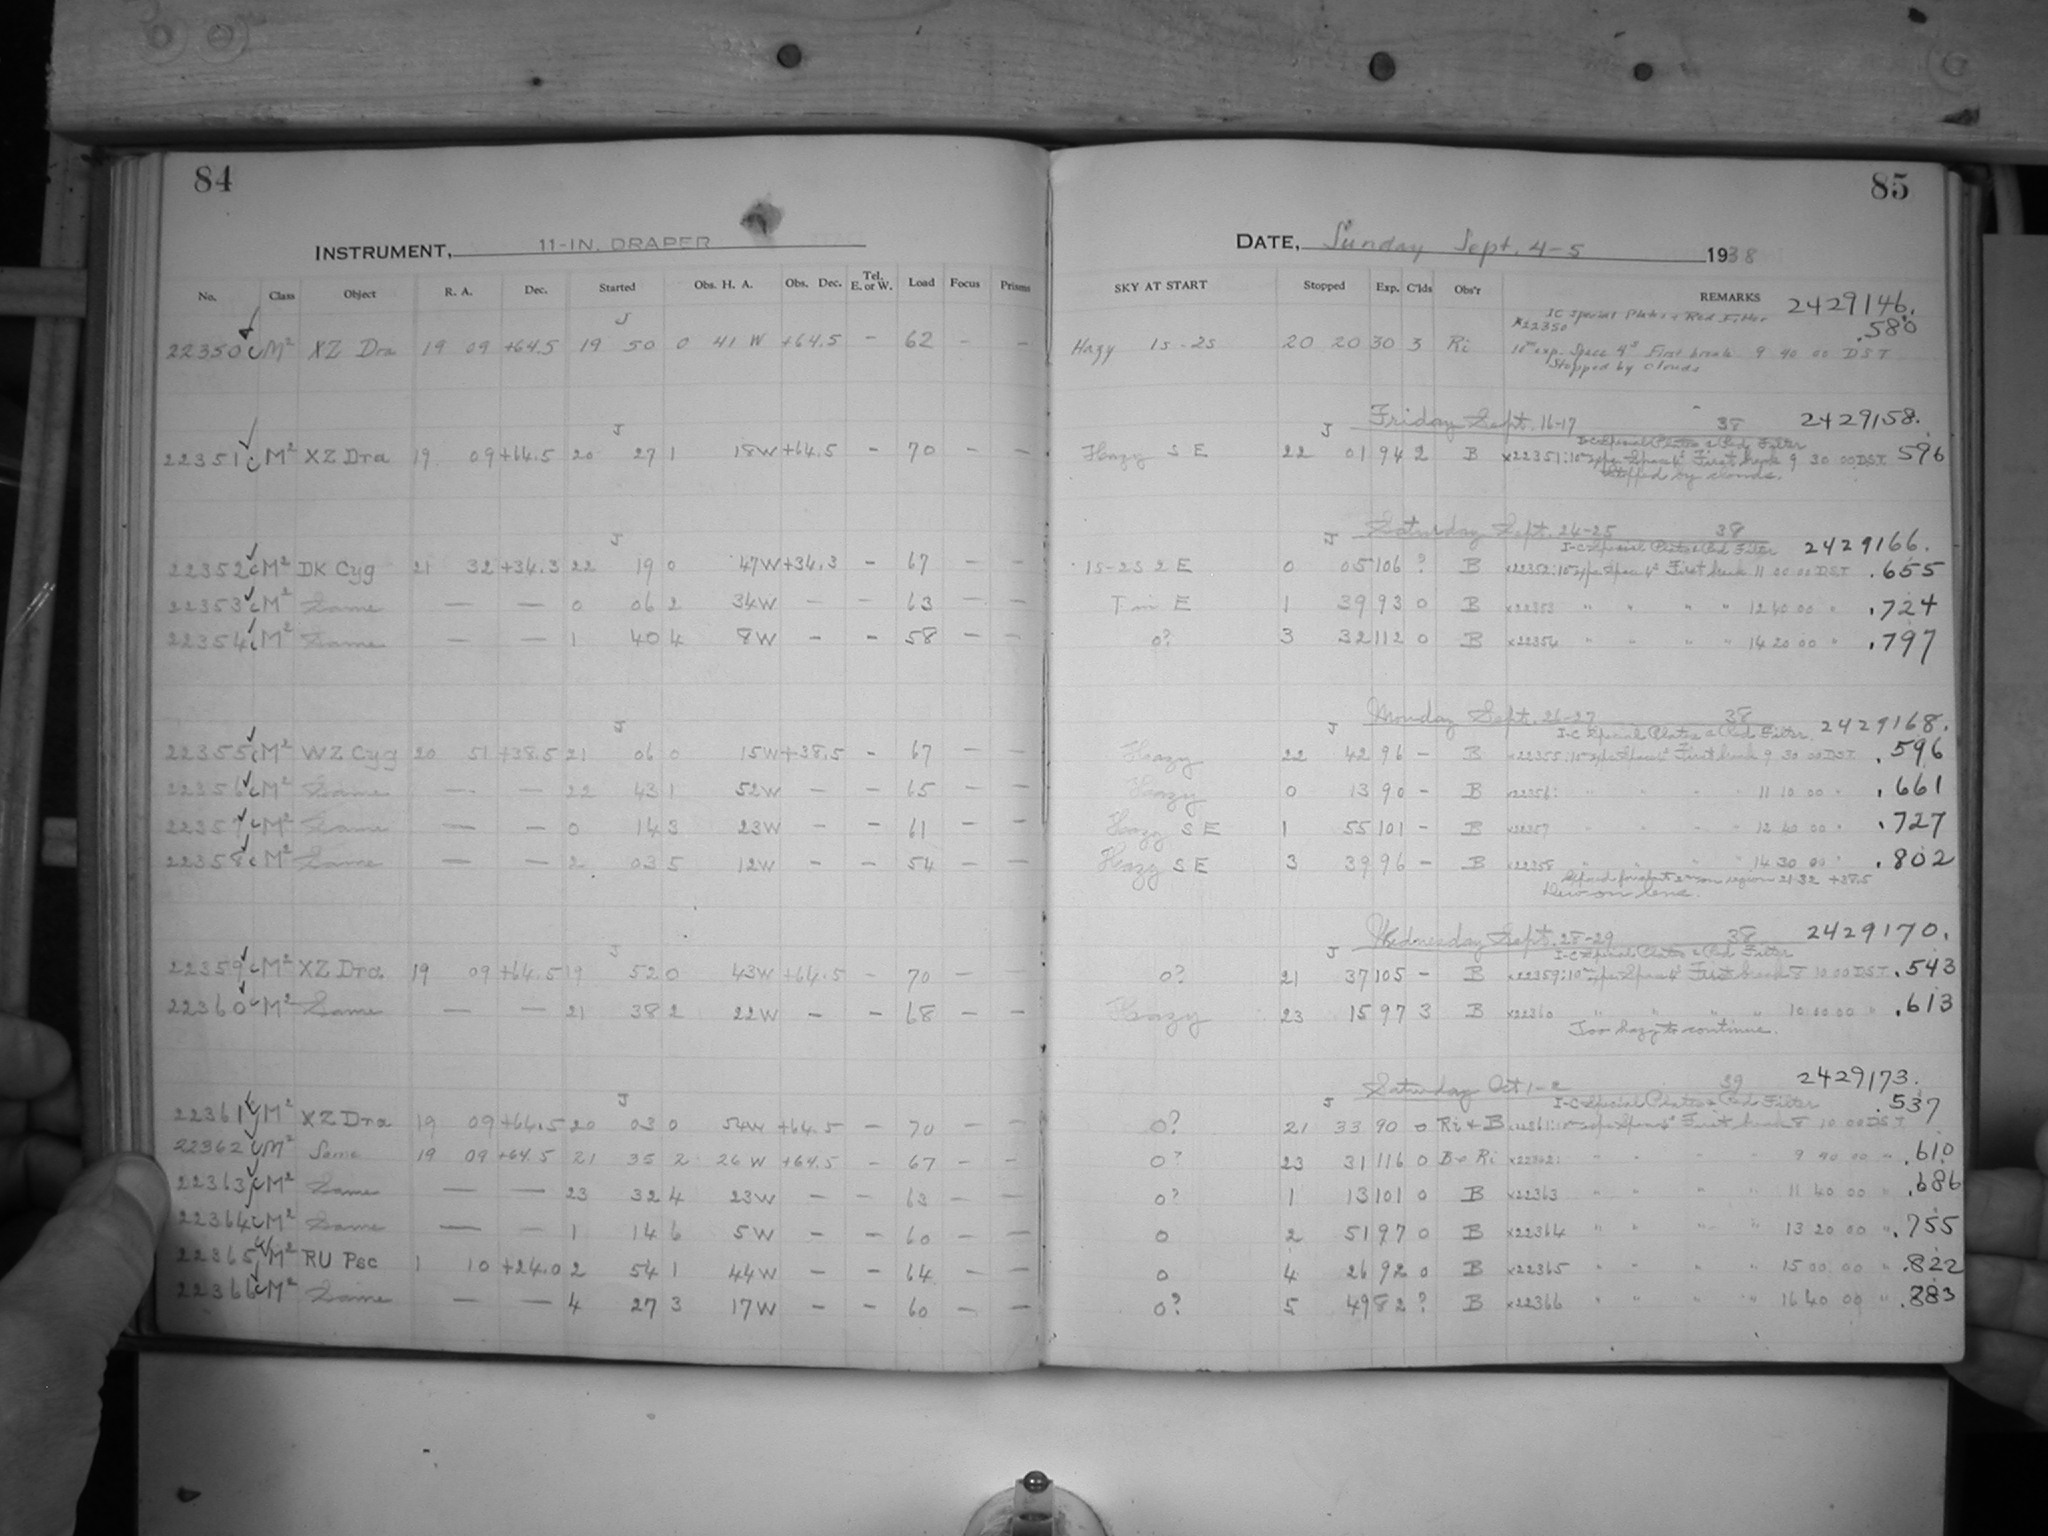 84
INSTRUMENT, 11-IN. DRAPER
No. Class Object R. A. Dec. Started Obs. H. A. Obs. Dec. Tel. E. or W. Load Focus Prisms
J
22350 M² XZ Dra 19 09 +64.5 19 50 0 41 W +64.5 - 62 - -
J
22351 M² XZ Dra 19 09 +64.5 20 27 1 18W +64.5 - 70 - -
J
22352 M² DK Cyg 21 32 +34.3 22 19 0 47W +34.3 - 67 - -
22353 M² Same — — 0 06 2 34W - - 63 - -
22354 M² Same — — 1 40 4 8W - - 58 - -
J
22355 M² WZ Cyg 20 51 +38.5 21 06 0 15W +38.5 - 67 - -
22356 M² Same — — 22 43 1 52W - - 65 - -
22357 M² Same — — 0 14 3 23W - - 61 - -
22358 M² Same — — 2 03 5 12W - - 54 - -
J
22359 M² XZ Dra 19 09 +64.5 19 52 0 43W +64.5 - 70 - -
22360 M² Same — — 21 38 2 22W - - 68 - -
J
22361 M² XZ Dra 19 09 +64.5 20 03 0 54W +64.5 - 70 - -
22362 M² Same 19 09 +64.5 21 35 2 26 W +64.5 - 67 - -
22363 M² Same — — 23 32 4 23W - - 63 - -
22364 M² Same — — 1 14 6 5W - - 60 - -
22365 M² RU Psc 1 10 +24.0 2 54 1 44W - - 64 - -
22366 M² Same — — 4 27 3 17W - - 60 - -
85
DATE, Sunday Sept. 4-5 1938
SKY AT START Stopped Exp. C'lds Obs'r REMARKS 2429146.
IC Special Plates & Red Filter
x22350 .580
Hazy 1s-2s 20 20 30 3 Ri 10m exp. Space 4s First break 9 40 00 DST
Stopped by clouds
Friday Sept. 16-17 38 2429158.
J I-C Special Plates & Red Filter
Hazy S E 22 01 94 2 B x22351: 10m exp. Space 4s First break 9 30 00 DST. 596
Stopped by clouds.
Saturday Sept. 24-25 38
J I-C Special Plates & Red Filter 2429166.
1s-2s 2 E 0 05 106 ? B x22352: 10m exp Space 4s First break 11 00 00 DST .655
T in E 1 39 93 0 B x22353 " " " " 12 40 00 " .724
0? 3 32 112 0 B x22354 " " " " 14 20 00 " .797
Monday Sept. 26-27 38 2429168.
J I-C Special Plates & Red Filter
Hazy 22 42 96 - B x22355: 10m exp Space 4s First break 9 30 00 DST. .596
Hazy 0 13 90 - B x22356: " " " " 11 10 00 " .661
Hazy S E 1 55 101 - B x22357 " " " " 12 40 00 " .727
Hazy S E 3 39 96 - B x22358 " " " " 14 30 00 " .802
region 21 32 +38.5
Dew on lens.
Wednesday Sept. 28-29 38 2429170.
J I-C Special Plates & Red Filter
0? 21 37 105 - B x22359: 10m exp Space 4s First break 8 10 00 DST. .543
Hazy 23 15 97 3 B x22360 " " " " 10 00 00 " .613
Too hazy to continue.
Saturday Oct 1-2 39 2429173.
J I-C Special Plates & Red Filter .537
0? 21 33 90 0 Ri & B x22361: 10m exp Space 4s First break 8 10 00 DST
0? 23 31 116 0 B & Ri x22362: " " " " 9 40 00 " .610
0? 1 13 101 0 B x22363 " " " " 11 40 00 " .686
0 2 51 97 0 B x22364 " " " " 13 20 00 " .755
0 4 26 92 0 B x22365 " " " " 15 00 00 " .822
0? 5 49 82 ? B x22366 " " " " 16 40 00 " .883